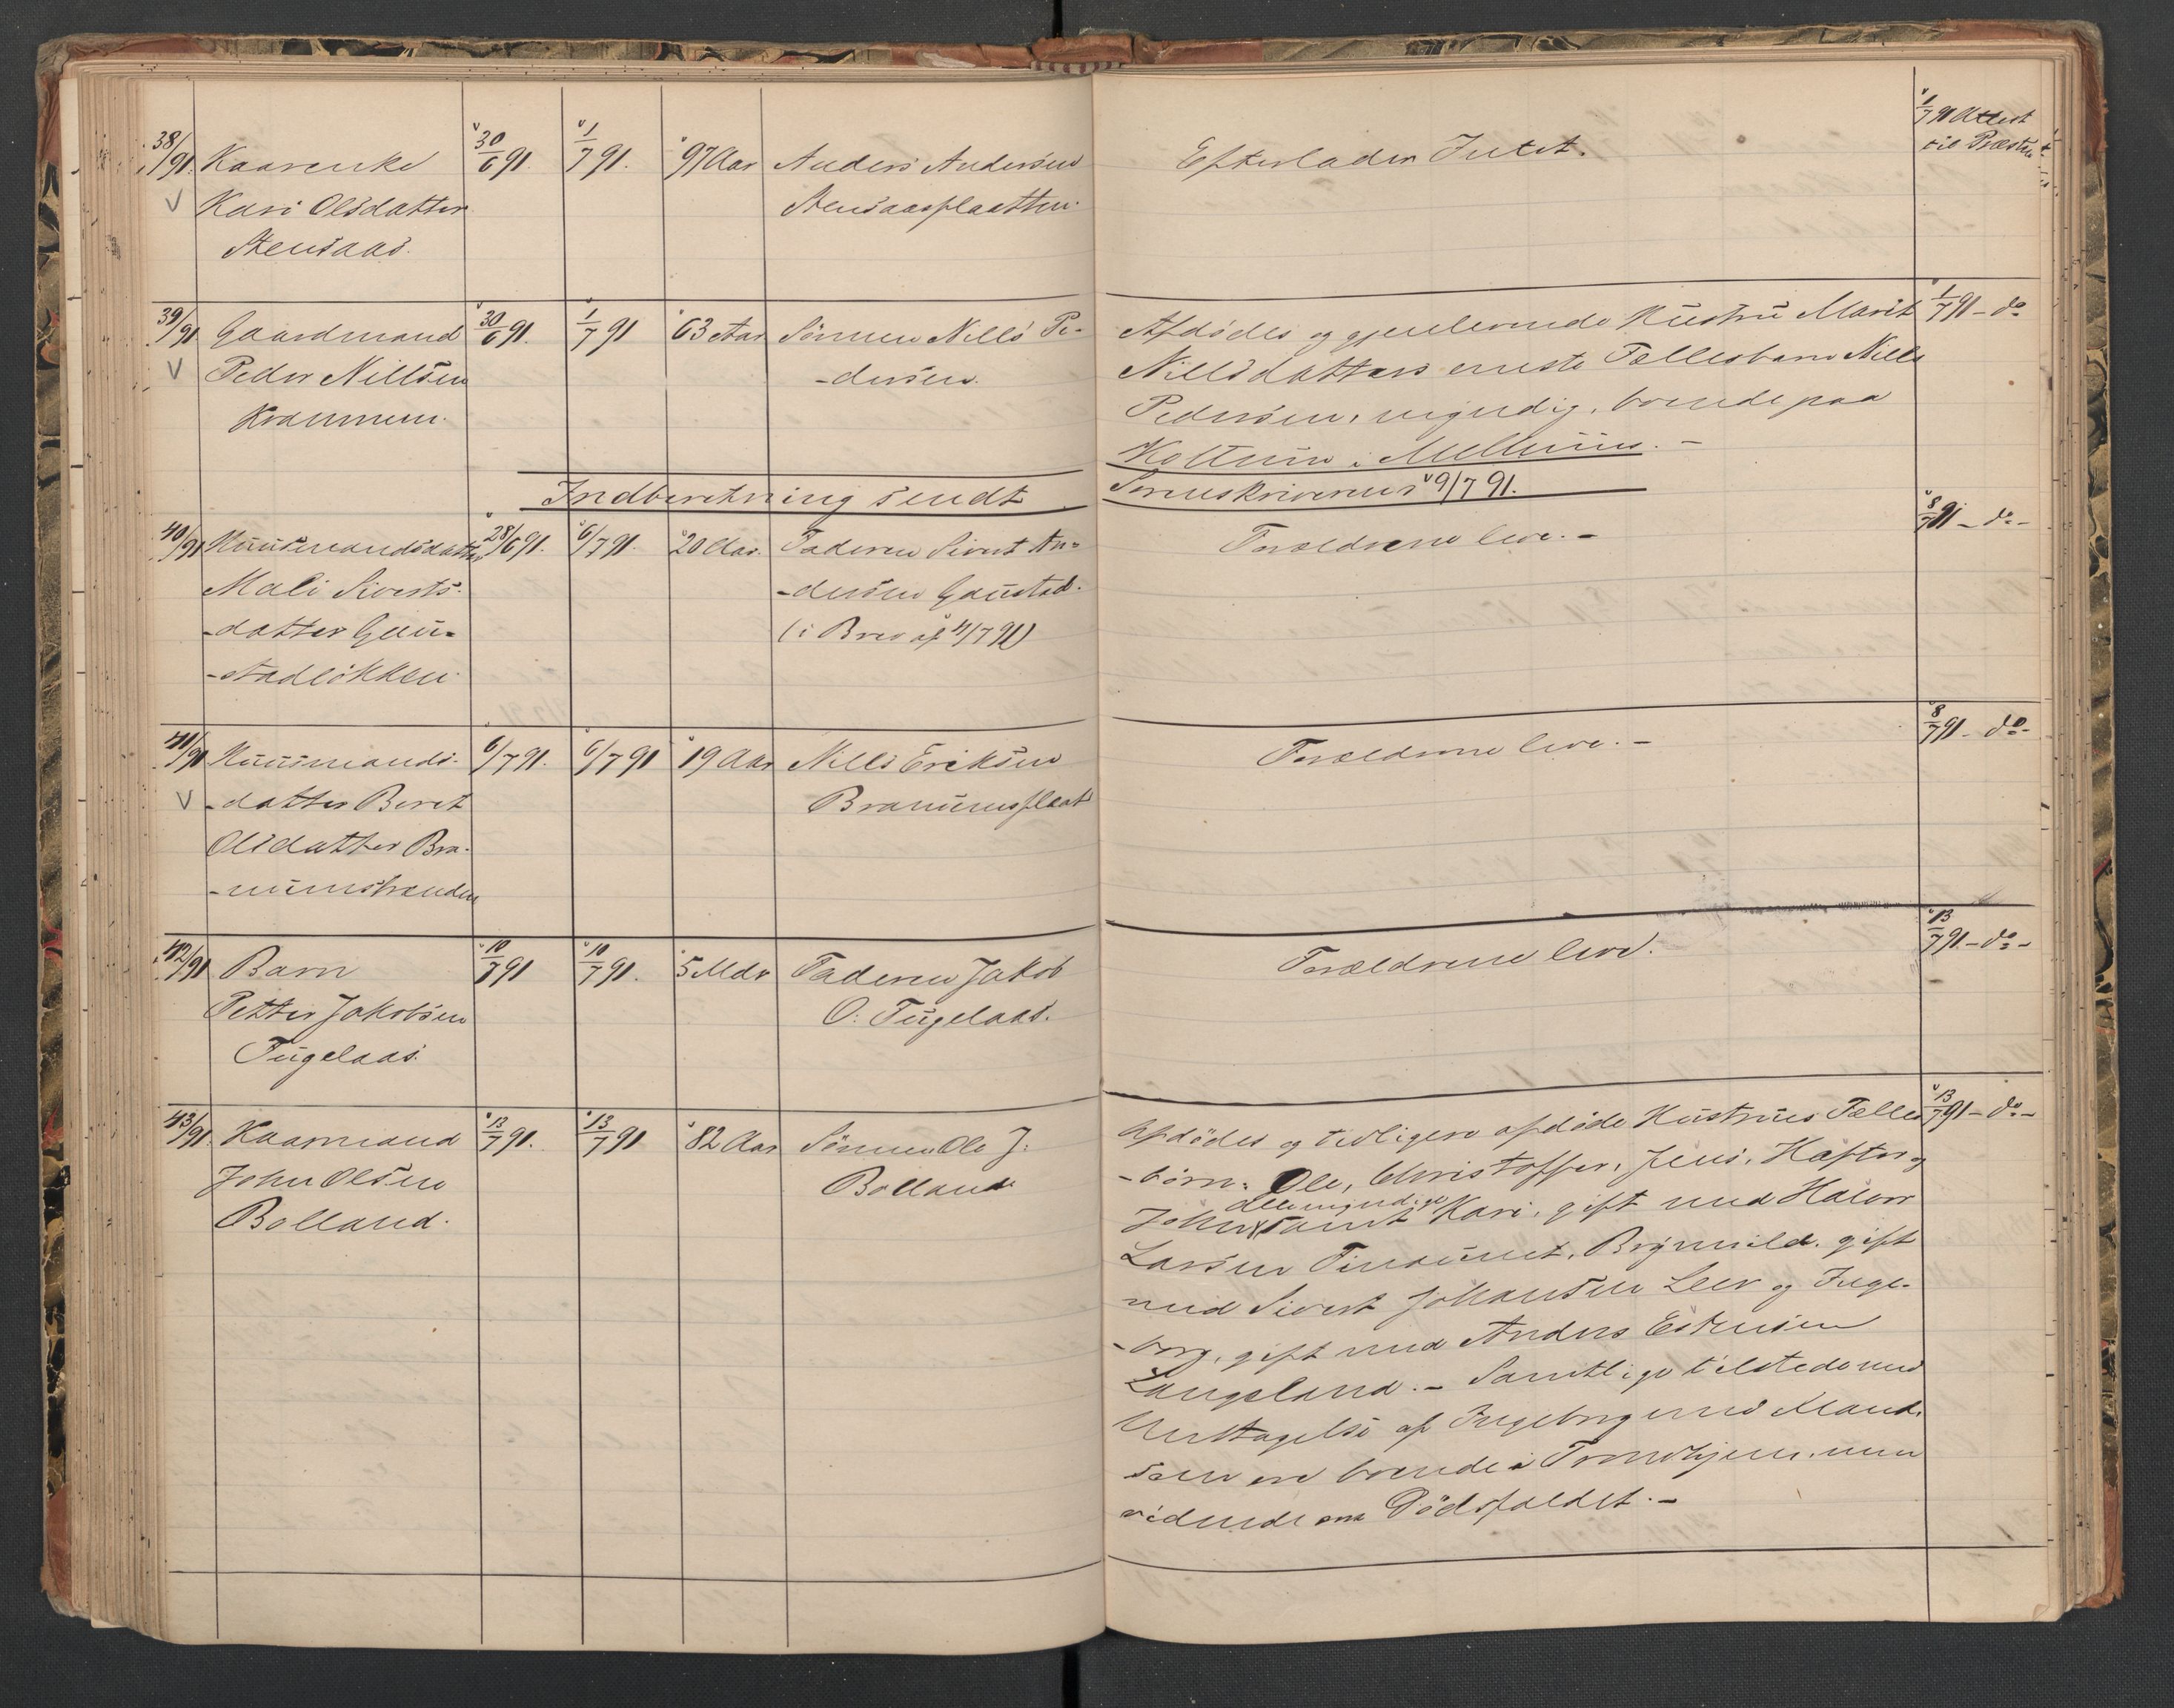 38/91. Kaarenke 30/6 91. 1/7 91. 97 Aar Anders Andersen Efterlader Intet. 1/7 91 Attest
Kari Olsdatter Stensaasplaatten. til Præsten
Stensaas.
39/91 Gaardmand 30/6 91. 1/7 91 63 Aar Sønnen Nills Pe- Afdødes og gjenlevende Hustru Marit 1/7 91 - do
Peder Nillsen -dersen. Nillsdatters eneste Fællesbarn Nills
Krammem. Pedersen, myndig, boende paa
Indberetning sendt Sorenskriveren 9/7 91.
40/91 Huusmandsdatter 28/6 91. 6/7 91. 20 Aar. Faderen Sivert An- Forældrene leve. - 8/7 91 - do -
Mali Siverts- -dersen Gaustad.
-datter Gau- (i Brev af 4/7 91)
-stadløkken
41/91 Huusmands- 6/7 91. 6/7 91 19 Aar Nills Eriksen Forældrene leve. - 8/7 91 - do -
-datter Beret Branumsplaat
Olsdatter Bra-
-numstranden
42/91 Barn 10/7 91 10/7 91. 5 Mdr Faderen Jakob Forældrene leve. 13/7 91 - do -
Petter Jakobsen O. Fugelaas.
Fugelaas.
43/91. Kaarmand 13/7 91. 13/7 91 82 Aar Sønnen Ole J: Afdødes og tidligere afdøde Hustrues Fælles 13/7 91 - do -
John Olsen Bolland -børn: Ole, Christoffer, Jens, Hafter og
Bolland. John, alle myndige samt Kari, gift med Halvor
Larsen, Brynnild, gift
med Sivert Johansen Leer og Inge-
-borg, gift med Anders Estensen
Langeland. - Samtlige tilstede med
Undtagelse af Ingeborg med Mand,
som ere boende i Trondhjem, men
vidende om Dødsfaldet. -